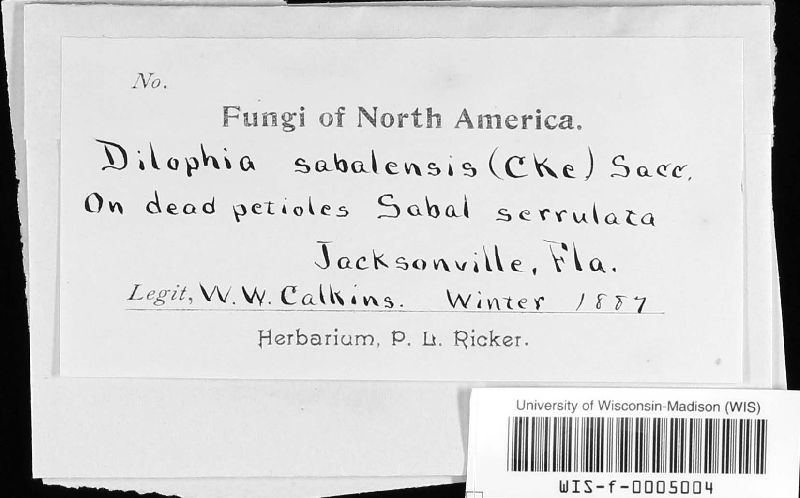 No.
Fungi of North America.
Dilophia sabalensis (CKe) Sacc.
On dead petioles Sabal serrulata
Jacksonville, Fla.
Legit, W. W. Calkins. Winter 1887
Herbarium, P. L. Ricker.
University of Wisconsin-Madison (WIS)
WIS-f-0005004